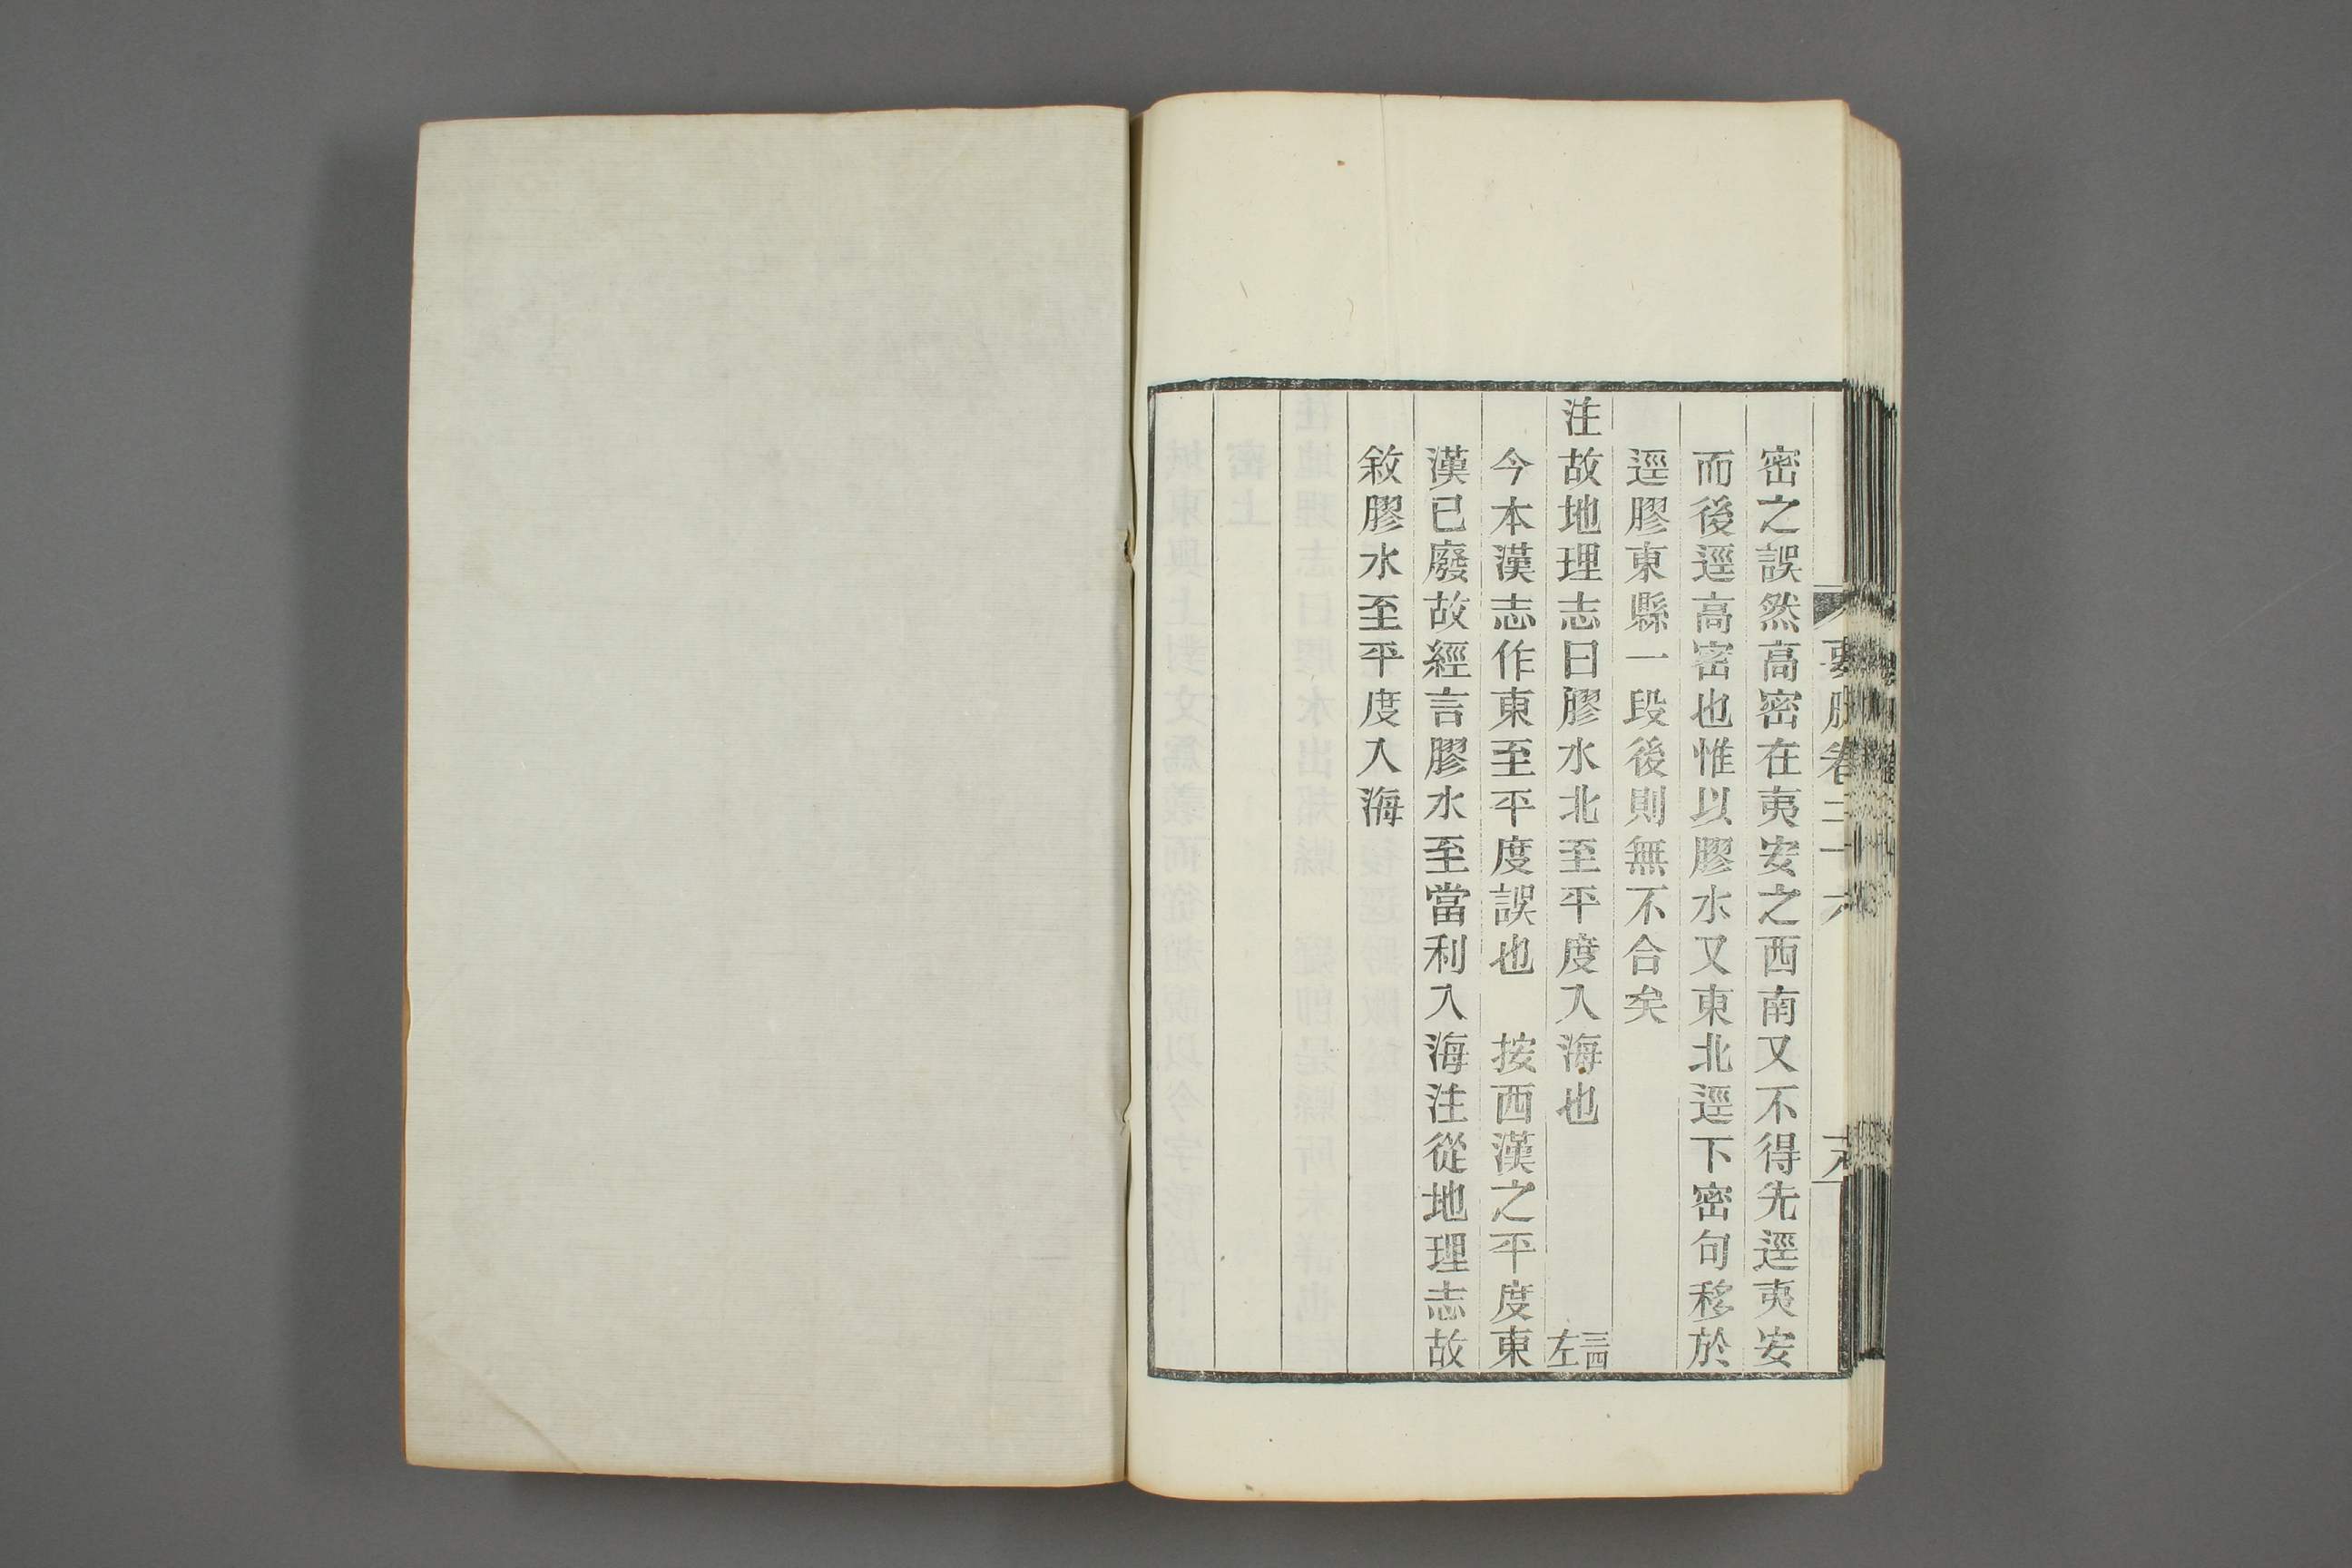 密之誤然高密在夷安之西南又不得先逕夷安
而後逕高密也惟以膠水又東北逕下密句移於
逕膠東縣一段後則無不合矣
注故地理志曰膠水北至平度入海也 三四左
今本漢志作東至平度誤也 按西漢之平度東
漢已廢故經言膠水至當利入海注從地理志故
敘膠水至平度入海